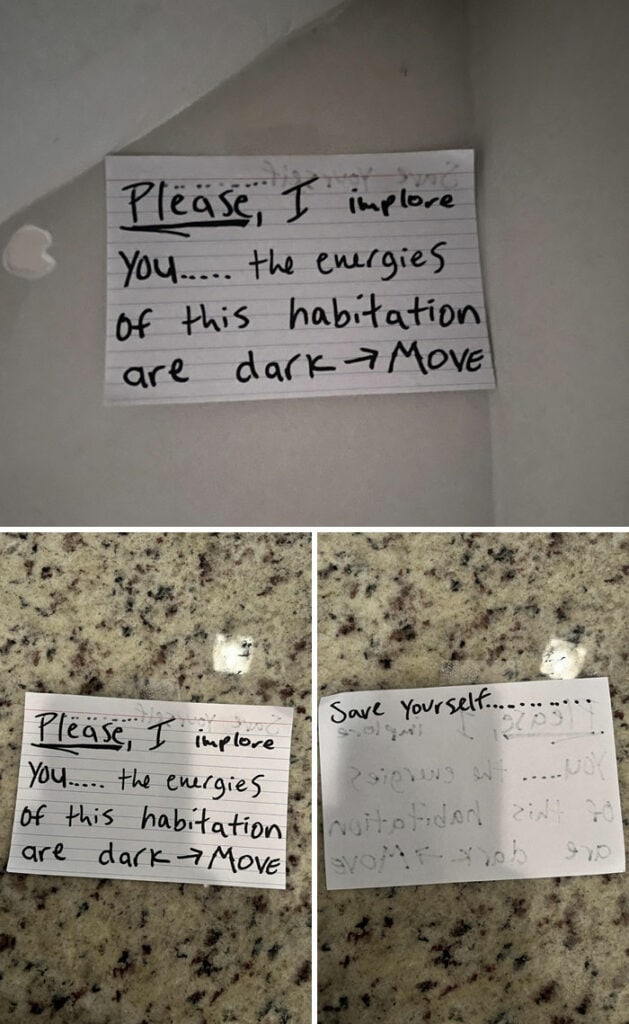 Please, I implore
You..... the energies
of this habitation
are dark → Move
Please, I implore
You..... the energies
of this habitation
are dark → Move
Save Yourself............